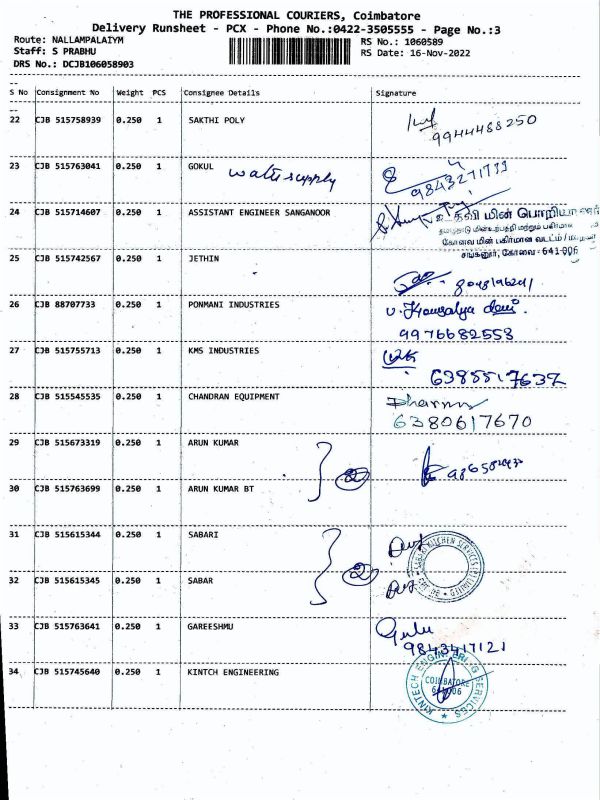 THE PROFESSIONAL COURIERS, Coimbatore
Delivery Runsheet - PCX - Phone No.:0422-3505555 - Page No.:3
Route: NALLAMPALAIYM RS No.: 1060589
Staff: S PRABHU RS Date: 16-Nov-2022
DRS No.: DCJB106058903
S No Consignment No Weight PCS Consignee Details Signature
22 CJB 515758939 0.250 1 SAKTHI POLY
9944488250
23 CJB 515763041 0.250 1 GOKUL
water supply
24 CJB 515714607 0.250 1 ASSISTANT ENGINEER SANGANOOR
உதவி மின் பொறியாளர்
தமிழ்நாடு மின்உற்பத்தி மற்றும் பகிர்மான
கோவை மின் பகிர்மான வட்டம் /
சங்கனூர், கோவை - 641 006
25 CJB 742567 0.250 1 JETHIN
26 CJB 88707733 0.250 1 PONMANI INDUSTRIES
v. Kousalya devi.
9976682558
27 CJB 515755713 0.250 1 KMS INDUSTRIES
6385517637
28 CJB 515545535 0.250 1 CHANDRAN EQUIPMENT
6380617670
29 CJB 515673319 0.250 1 ARUN KUMAR
2
30 CJB 515763699 0.250 1 ARUN KUMAR BT
31 CJB 515615344 0.250 1 SABARI
2
SABARI KITCHEN SERVICES
32 CJB 515615345 0.250 1 SABAR
33 CJB 515763641 0.250 1 GAREESHMU
9843417121
34 CJB 515745640 0.250 1 KINTCH ENGINEERING
KINTECH ENGINEERING SERVICES
COIMBATORE
641 006